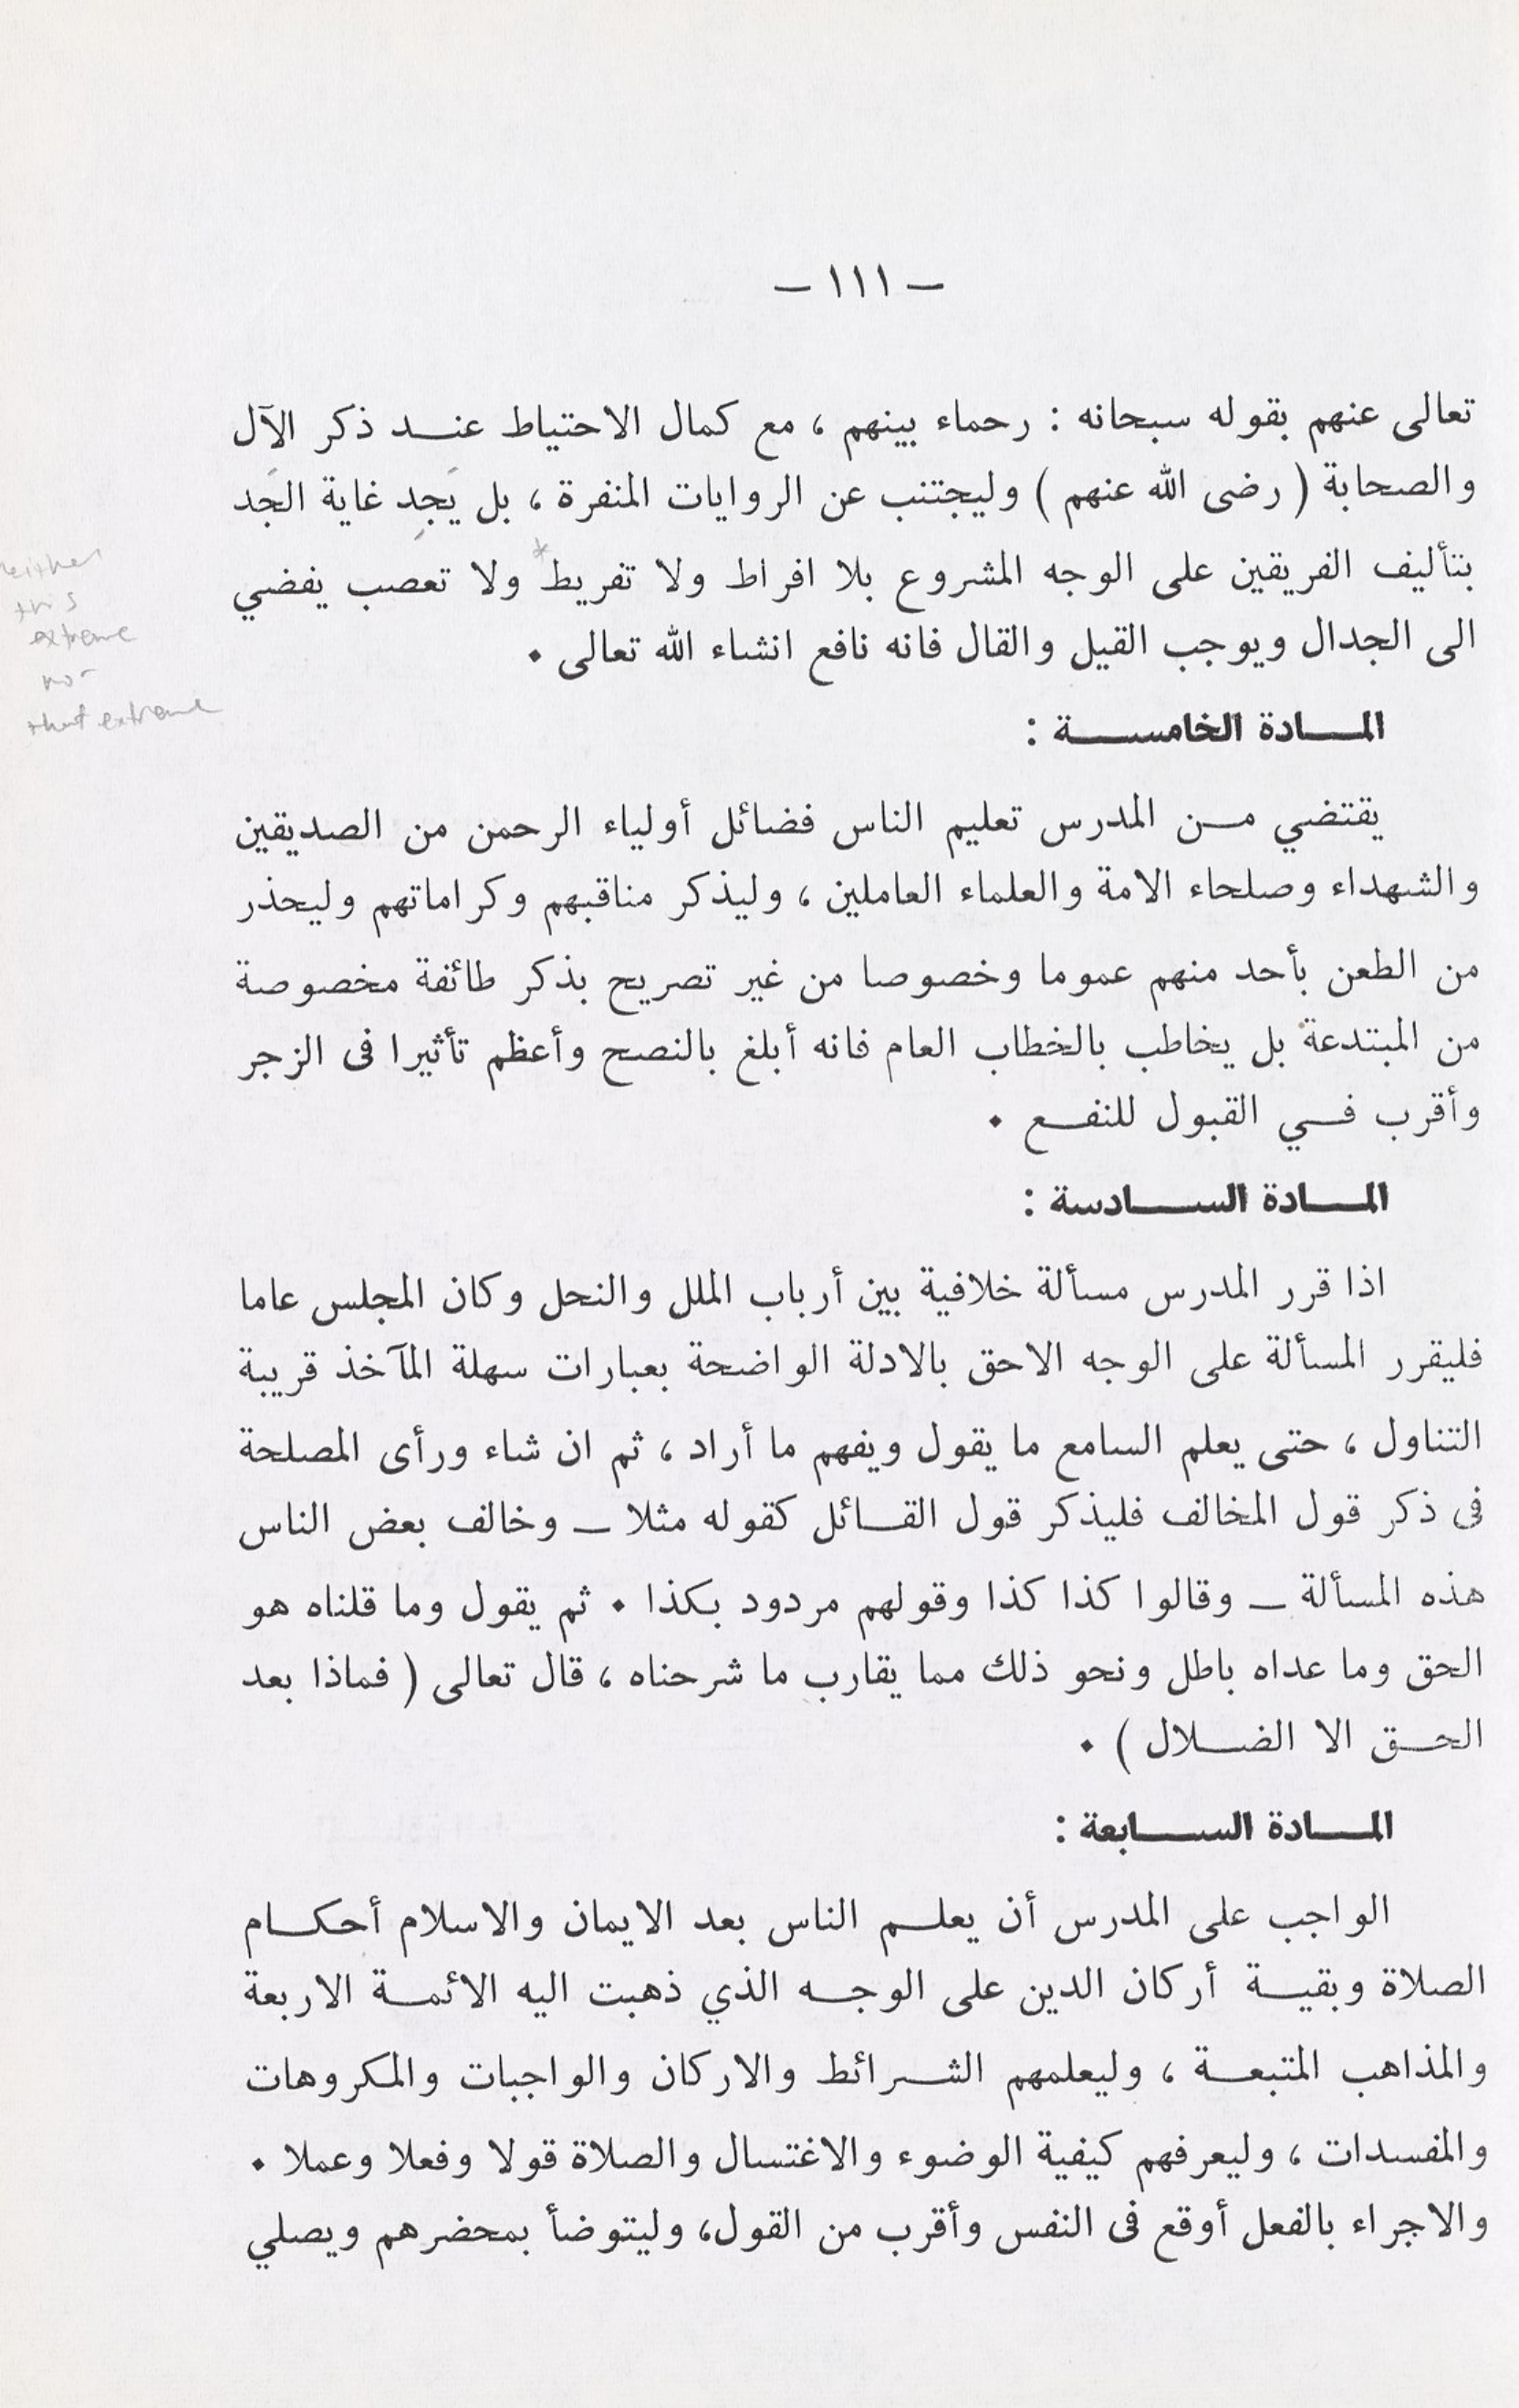 — ١١١ —
تعالى عنهم بقوله سبحانه : رحماء بينهم ، مع كمال الاحتياط عنـد ذكر الآل
والصحابة ( رضى الله عنهم ) وليجتنب عن الروايات المنفرة ، بل يَجِد غاية الجَد
بتأليف الفريقين على الوجه المشروع بلا افراط ولا تفريط* ولا تعصب يفضي
الى الجدال ويوجب القيل والقال فانه نافع انشاء الله تعالى .
neither
this
extreme
nor
that extreme
المـادة الخامسـة :
يقتضي مـن المدرس تعليم الناس فضائل أولياء الرحمن من الصديقين
والشهداء وصلحاء الامة والعلماء العاملين ، وليذكر مناقبهم وكراماتهم وليحذر
من الطعن بأحد منهم عموما وخصوصا من غير تصريح بذكر طائفة مخصوصة
من المبتدعة بل يخاطب بالخطاب العام فانه أبلغ بالنصح وأعظم تأثيرا فى الزجر
وأقرب فـي القبول للنفـع .
المـادة السـادسة :
اذا قرر المدرس مسألة خلافية بين أرباب الملل والنحل وكان المجلس عاما
فليقرر المسألة على الوجه الاحق بالادلة الواضحة بعبارات سهلة المآخذ قريبة
التناول ، حتى يعلم السامع ما يقول ويفهم ما أراد ، ثم ان شاء ورأى المصلحة
فى ذكر قول المخالف فليذكر قول القـائل كقوله مثلا — وخالف بعض الناس
هذه المسألة — وقالوا كذا كذا وقولهم مردود بكذا . ثم يقول وما قلناه هو
الحق وما عداه باطل ونحو ذلك مما يقارب ما شرحناه ، قال تعالى ( فماذا بعد
الحـق الا الضـلال ) .
المـادة السـابعة :
الواجب على المدرس أن يعلـم الناس بعد الايمان والاسلام أحكـام
الصلاة وبقيـة أركان الدين على الوجـه الذي ذهبت اليه الائمـة الاربعة
والمذاهب المتبعـة ، وليعلمهم الشـرائط والاركان والواجبات والمكروهات
والمفسدات ، وليعرفهم كيفية الوضوء والاغتسال والصلاة قولا وفعلا وعملا .
والاجراء بالفعل أوقع فى النفس وأقرب من القول، وليتوضأ بمحضرهم ويصلي